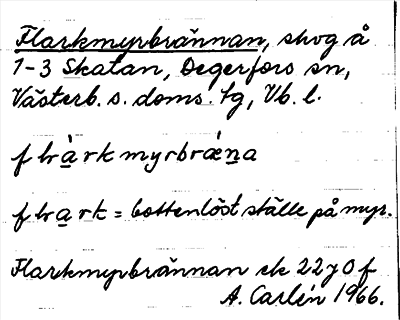 Flarkmyrbrännan, skog å
1-3 Skatan, Degerfors sn,
Västerb. s. doms. tg, Vb. l.
flàrkmyrbrǽna
flark = bottenlöst ställe på myr.
Flarkmyrbrännan ek 22 J 0 f
A. Carlén 1966.